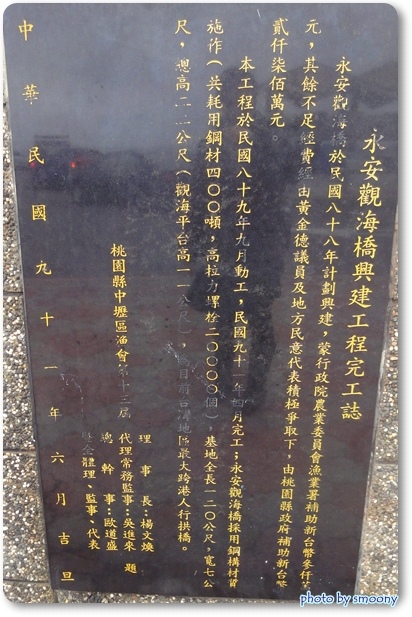 永安觀海橋興建工程完工誌
永安觀海橋於民國八十八年計劃興建，蒙行政院農業委員會漁業署補助新台幣參仟
元，其餘不足經費經由黃金德議員及地方民意代表積極爭取下，由桃園縣政府補助新台幣
貳仟柒佰萬元。
本工程於民國八十九年九月動工，民國九十一年四月完工；永安觀海橋採用鋼構材質
施作（共耗用鋼材四００噸，高拉力螺栓二００００個），基地全長一二０公尺，寬七公
尺，總高二二公尺（觀海平台高一一公尺），為目前台灣地區最大跨港人行拱橋。
桃園縣中壢區漁會第十三屆
理事長：楊文煥
代理常務監事：吳進來 題
總幹事：歐道盛
暨全體理、監事、代表
中華民國九十一年六月吉旦
photo by smoony